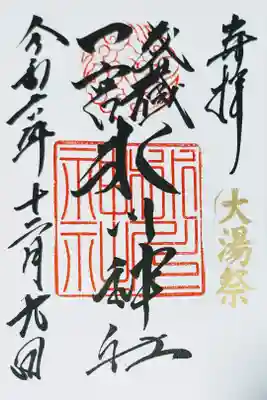 奉拝
大湯祭
武蔵
一宮
氷川神社
氷川神社
令和年十二月九日